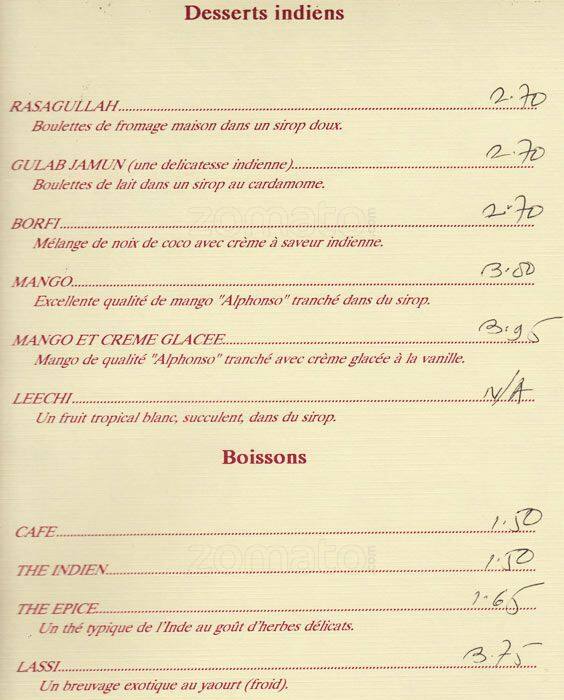 Desserts indiens
RASAGULLAH 2.70
Boulettes de fromage maison dans un sirop doux.
GULAB JAMUN (une delicatesse indienne) 2.70
Boulettes de lait dans un sirop au cardamome.
BORFI 2.70
zomato.com
Mélange de noix de coco avec crème à saveur indienne.
MANGO 3.80
Excellente qualité de mango "Alphonso" tranché dans du sirop.
MANGO ET CREME GLACEE 3.95
Mango de qualité "Alphonso" tranché avec crème glacée à la vanille.
LEECHI N/A
Un fruit tropical blanc, succulent, dans du sirop.
Boissons
CAFE 1.50
zomato.com
THE INDIEN 1.50
THE EPICE 1.65
Un thé typique de l'Inde au goût d'herbes délicats.
LASSI 3.75
Un breuvage exotique au yaourt (froid).